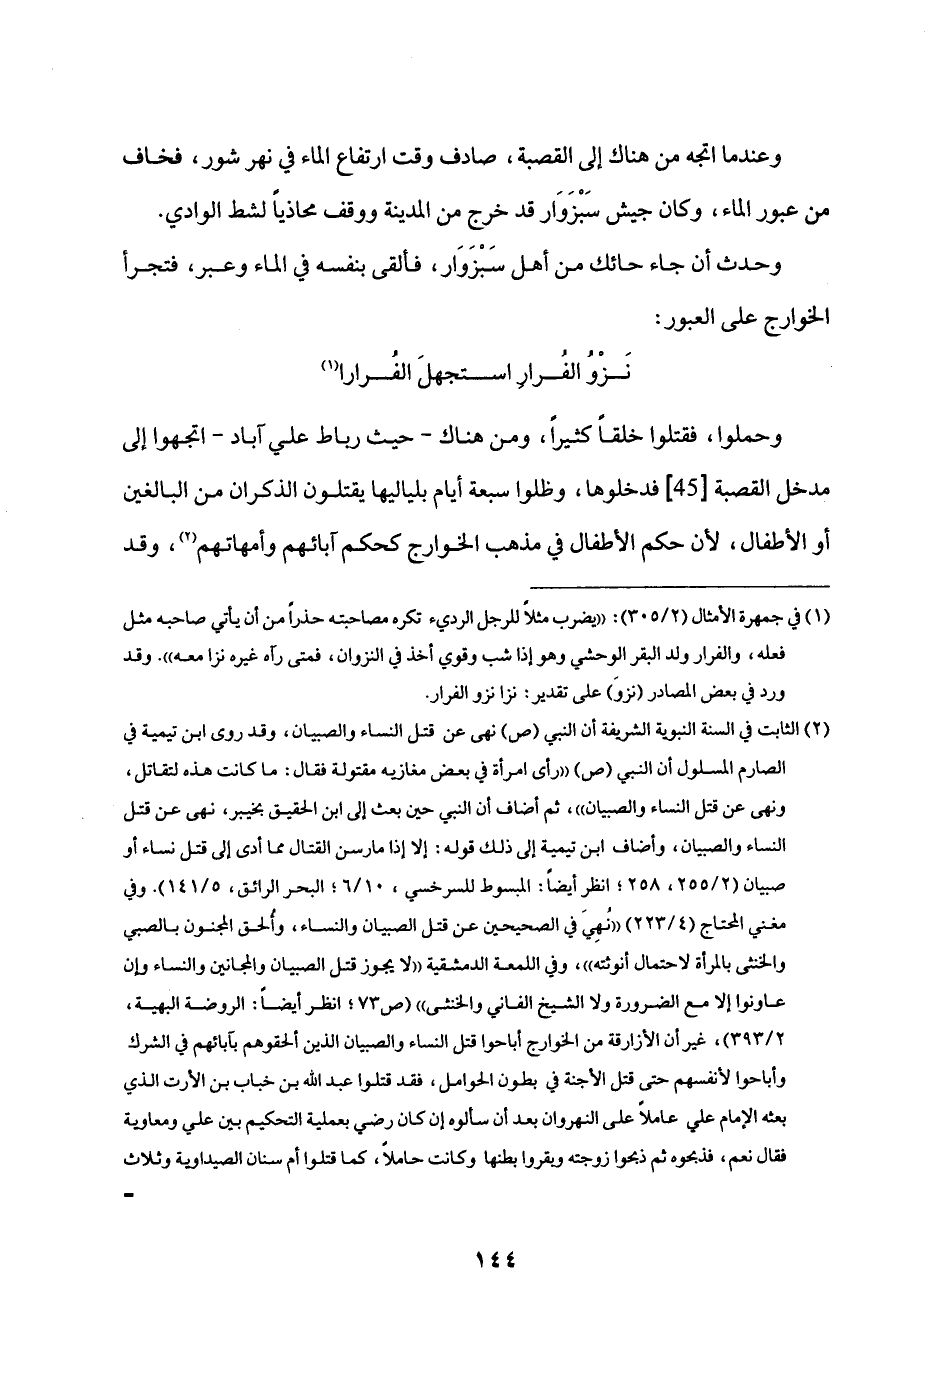 وعندما اتجه من هناك إلى القصبة، صادف وقت ارتفاع الماء في نهر شور، فخاف
من عبور الماء، وكان جيش سَبْزَوَار قد خرج من المدينة ووقف محاذياً لشط الوادي.
وحدث أن جاء حائك من أهل سَبْزَوَار، فألقى بنفسه في الماء وعبر، فتجرأ
الخوارج على العبور:
نَـزْوُ الفُـرارِ استجهلَ الفُـرارا(١)
وحملوا، فقتلوا خلقاً كثيراً، ومن هناك - حيث رباط علي آباد - اتجهوا إلى
مدخل القصبة [45] فدخلوها، وظلوا سبعة أيام بلياليها يقتلون الذكران من البالغين
أو الأطفال، لأن حكم الأطفال في مذهب الخوارج كحكم آبائهم وأمهاتهم(٢)، وقد
(١) في جمهرة الأمثال (٣٠٥/٢): ((يضرب مثلاً للرجل الرديء تكره مصاحبته حذراً من أن يأتي صاحبه مثل
فعله، والفرار ولد البقر الوحشي وهو إذا شب وقوي أخذ في النزوان، فمتى رآه غيره نزا معه)). وقد
ورد في بعض المصادر (نزوَ) على تقدير: نزا نزو الفرار.
(٢) الثابت في السنة النبوية الشريفة أن النبي (ص) نهى عن قتل النساء والصبيان، وقد روى ابن تيمية في
الصارم المسلول أن النبي (ص) ((رأى امرأة في بعض مغازيه مقتولة فقال: ما كانت هذه لتقاتل،
ونهى عن قتل النساء والصبيان))، ثم أضاف أن النبي حين بعث إلى ابن الحقيق بخيبر، نهى عن قتل
النساء والصبيان، وأضاف ابن تيمية إلى ذلك قوله: إلا إذا مارسن القتال مما أدى إلى قتل نساء أو
صبيان (٢٥٥/٢، ٢٥٨؛ انظر أيضاً: المبسوط للسرخسي، ٦/١٠؛ البحر الرائق، ١٤١/٥). وفي
مغني المحتاج (٢٢٣/٤) ((نُهِيَ في الصحيحين عن قتل الصبيان والنساء، وأُلحق المجنون بالصبي
والخنثى بالمرأة لاحتمال أنوثته))، وفي اللمعة الدمشقية ((لا يجوز قتل الصبيان والمجانين والنساء وإن
عاونوا إلا مع الضرورة ولا الشيخ الفاني والخنثى)) (ص٧٣؛ انظر أيضاً: الروضة البهية،
٣٩٣/٢)، غير أن الأزارقة من الخوارج أباحوا قتل النساء والصبيان الذين ألحقوهم بآبائهم في الشرك
وأباحوا لأنفسهم حتى قتل الأجنة في بطون الحوامل، فقد قتلوا عبد الله بن خباب بن الأرت الذي
بعثه الإمام علي عاملاً على النهروان بعد أن سألوه إن كان رضي بعملية التحكيم بين علي ومعاوية
فقال نعم، فذبحوه ثم ذبحوا زوجته وبقروا بطنها وكانت حاملاً، كما قتلوا أم سنان الصيداوية وثلاث
=
١٤٤